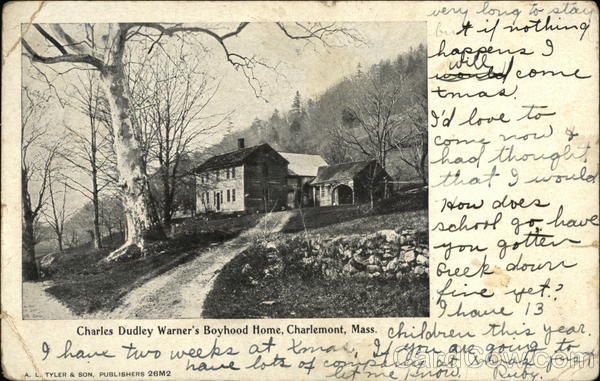 very long to stay
& if nothing
happens I
will
would come
Xmas.
I'd love to
come now &
had thought
that I would
How does
school go, have
you gotten
Greek down
fine yet?
I have 13
children this year.
Charles Dudley Warner's Boyhood Home, Charlemont, Mass.
I have two weeks at Xmas, If you are going to
have lots of company at
let me know. Ruby.
A. L. TYLER & SON, PUBLISHERS 26M2
CardCow.com